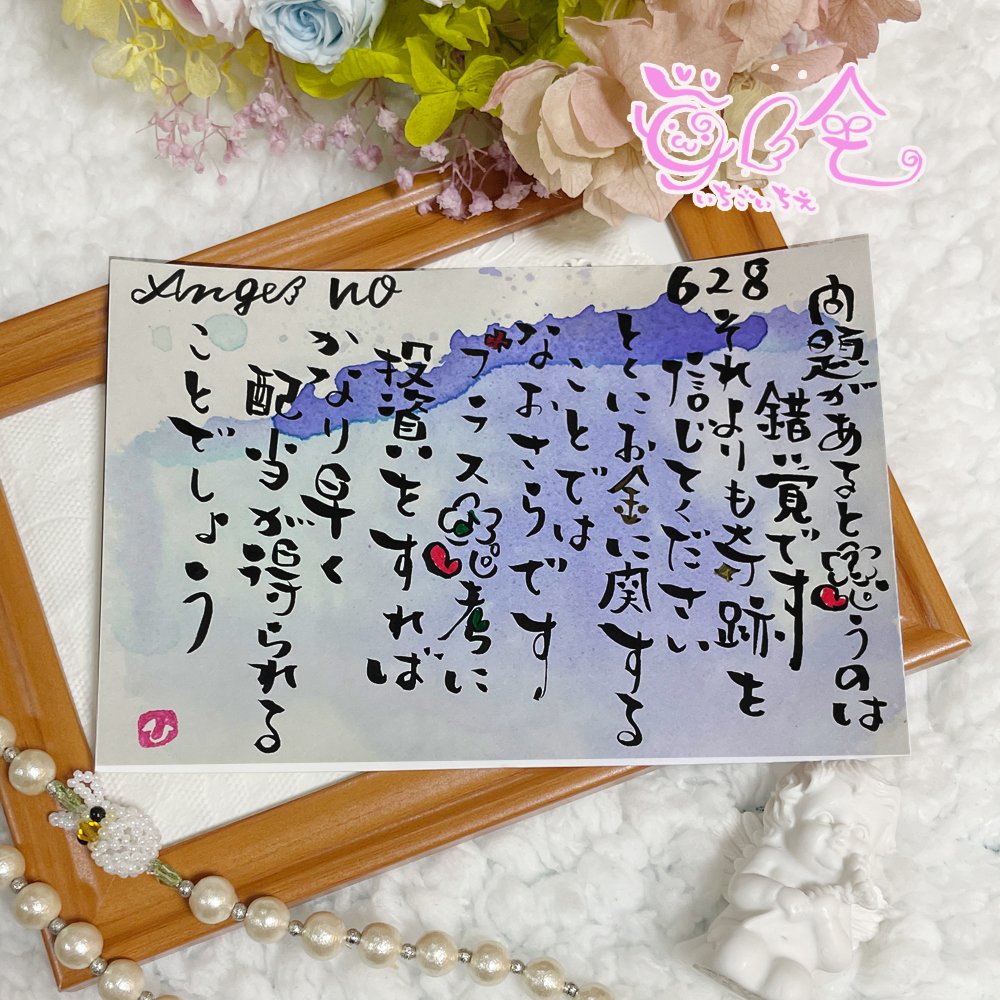 Angel no 628
問題があると思うのは
錯覚です
それよりも奇跡を
信じてください
とくにお金に関する
ことでは
なおさらです
プラス思考に
投資をすれば
かなり早く
配当が得られる
ことでしょう
ひ
いちごいちえ